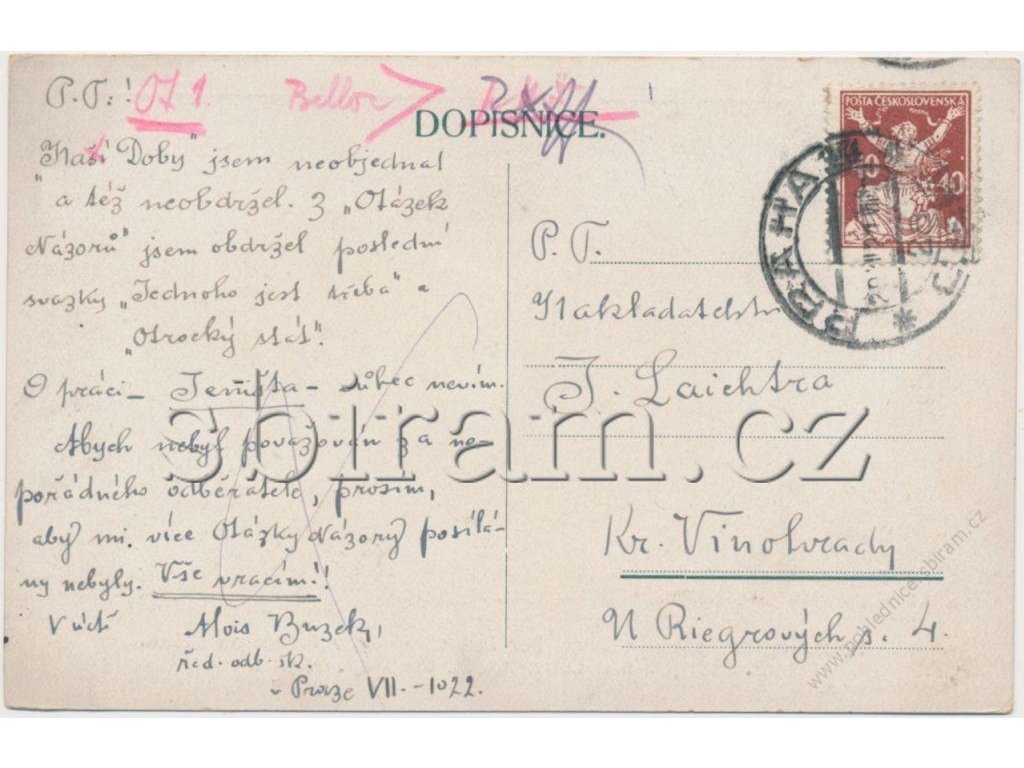 P.T.!
OT 1. Belloc
DOPISNICE.
"Naší Doby" jsem neobjednal
a též neobdržel. Z "Otázek
Názorů" jsem obdržel poslední
svazky "Jednoho jest třeba" a
"Otrocký stát".
O práci - - vůbec nevím.
Abych nebyl považován za ne-
pořádného odběratele, prosím,
aby mi více Otázky Názory posílá-
ny nebyly. Vše vracím!!
V úctě Alois Buzek,
řed. odb. šk.
v Praze VII. - 1022.
POŠTA ČESKOSLOVENSKÁ
40
PRAHA
P. T.
Nakladatelství
J. Laichtra
Kr. Vinohrady
U Riegrových s. 4.
sbiram.cz
www.pohlednice-sbiram.cz